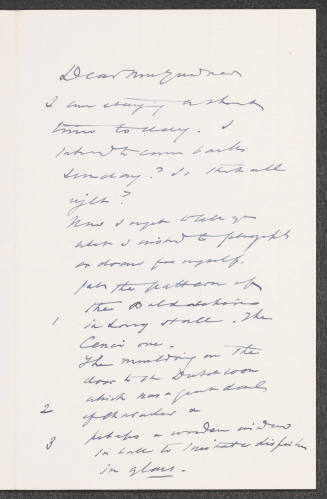 Dear Mrs Gardner
I am staying a short
time to day. I
intend to come back
Sunday? Is that all
right?
Now I want to tell you
what I wished to photograph
or draw for myself.
take the pattern of
the
1 in Long Hall. The
Cenci one.
The moulding on the
door to the Dutch room
which has a great deal
2 of character or
3 perhaps a wooden window
in hall to imitate
in glass.